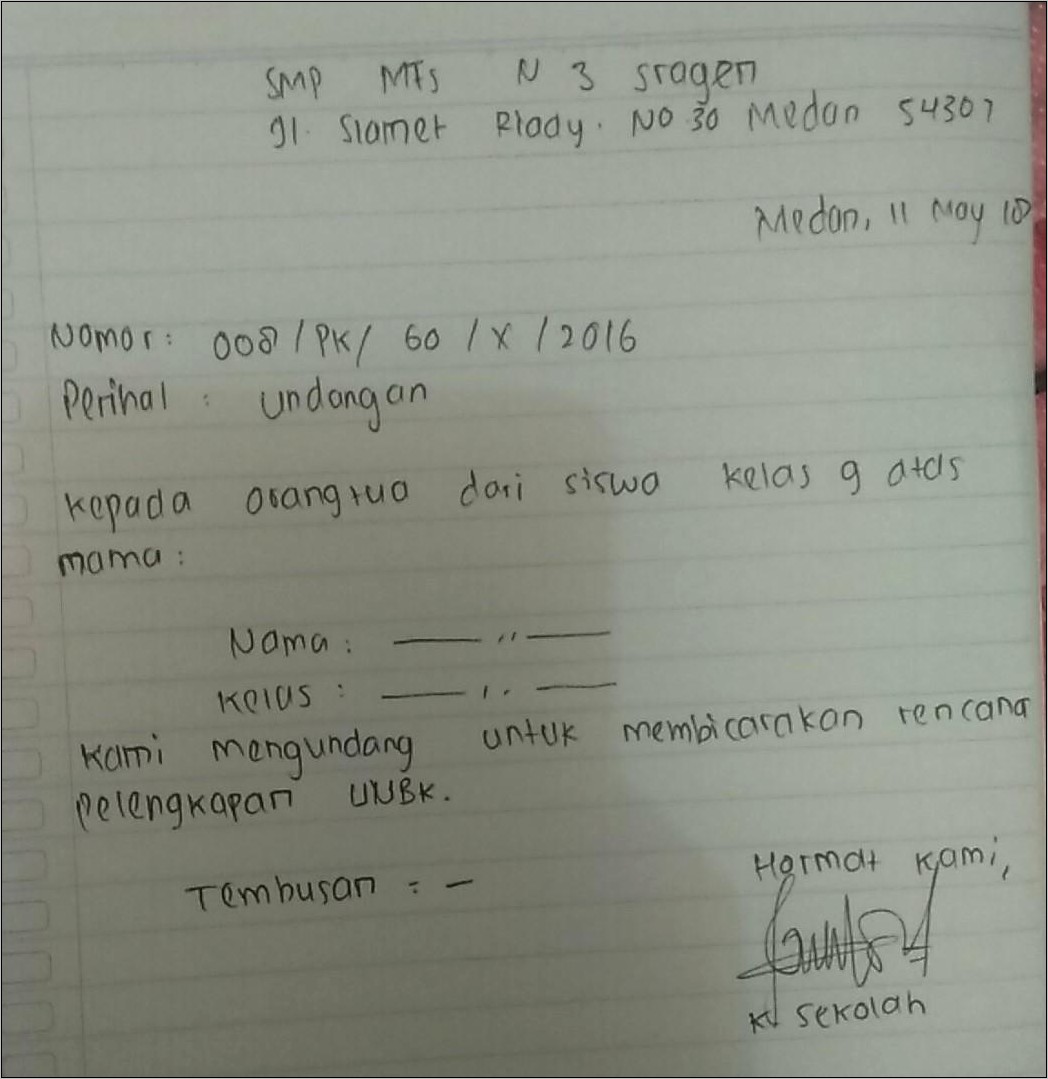 SMP MTs N 3 sragen
Jl. Slamet Riady. No 30 Medan 54307
Medan, 11 May 18
Nomor: 008 / PK / 60 / X / 2016
Perihal : undangan
kepada orangtua dari siswa kelas 9 atas
mama :
Nama : — '' —
Kelas : — '' —
Kami mengundang untuk membicarakan rencana
pelengkapan UNBK.
Tembusan : -
Hormat kami,
K sekolah